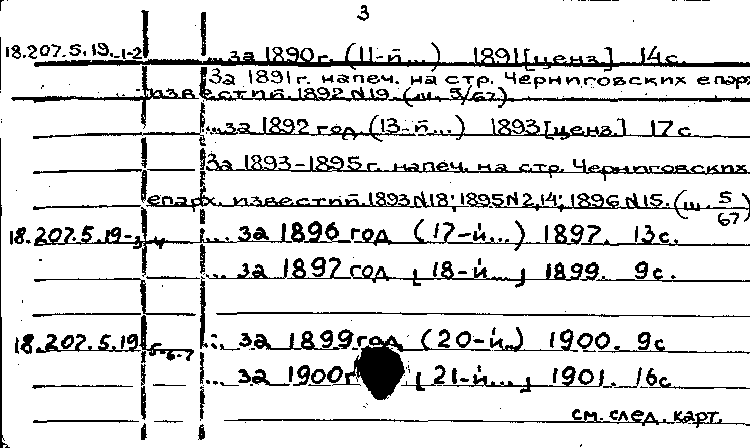 3
18.207.5.19.-1-2 ...за 1890г. (11-й...) 1891[ценз.] 14с.
За 1891г. напеч. на стр. Черниговских епарх
известий. 1892 N19. (ш. 5/67).
...за 1892 год (13-й...) 1893[ценз.] 17с
За 1893-1895г. напеч. на стр. Черниговских
епарх. известий. 1893 N18; 1895 N2,14; 1896 N15. (ш. 5/67)
18.207.5.19-3-4 ... за 1896 год (17-й...) 1897. 13с.
... за 1897 год [18-й...] 1899. 9с.
18.207.5.19 5-6-7 ... за 1899год (20-й..) 1900. 9с
... за 1900г [21-й...] 1901. 16с
см. след. карт.